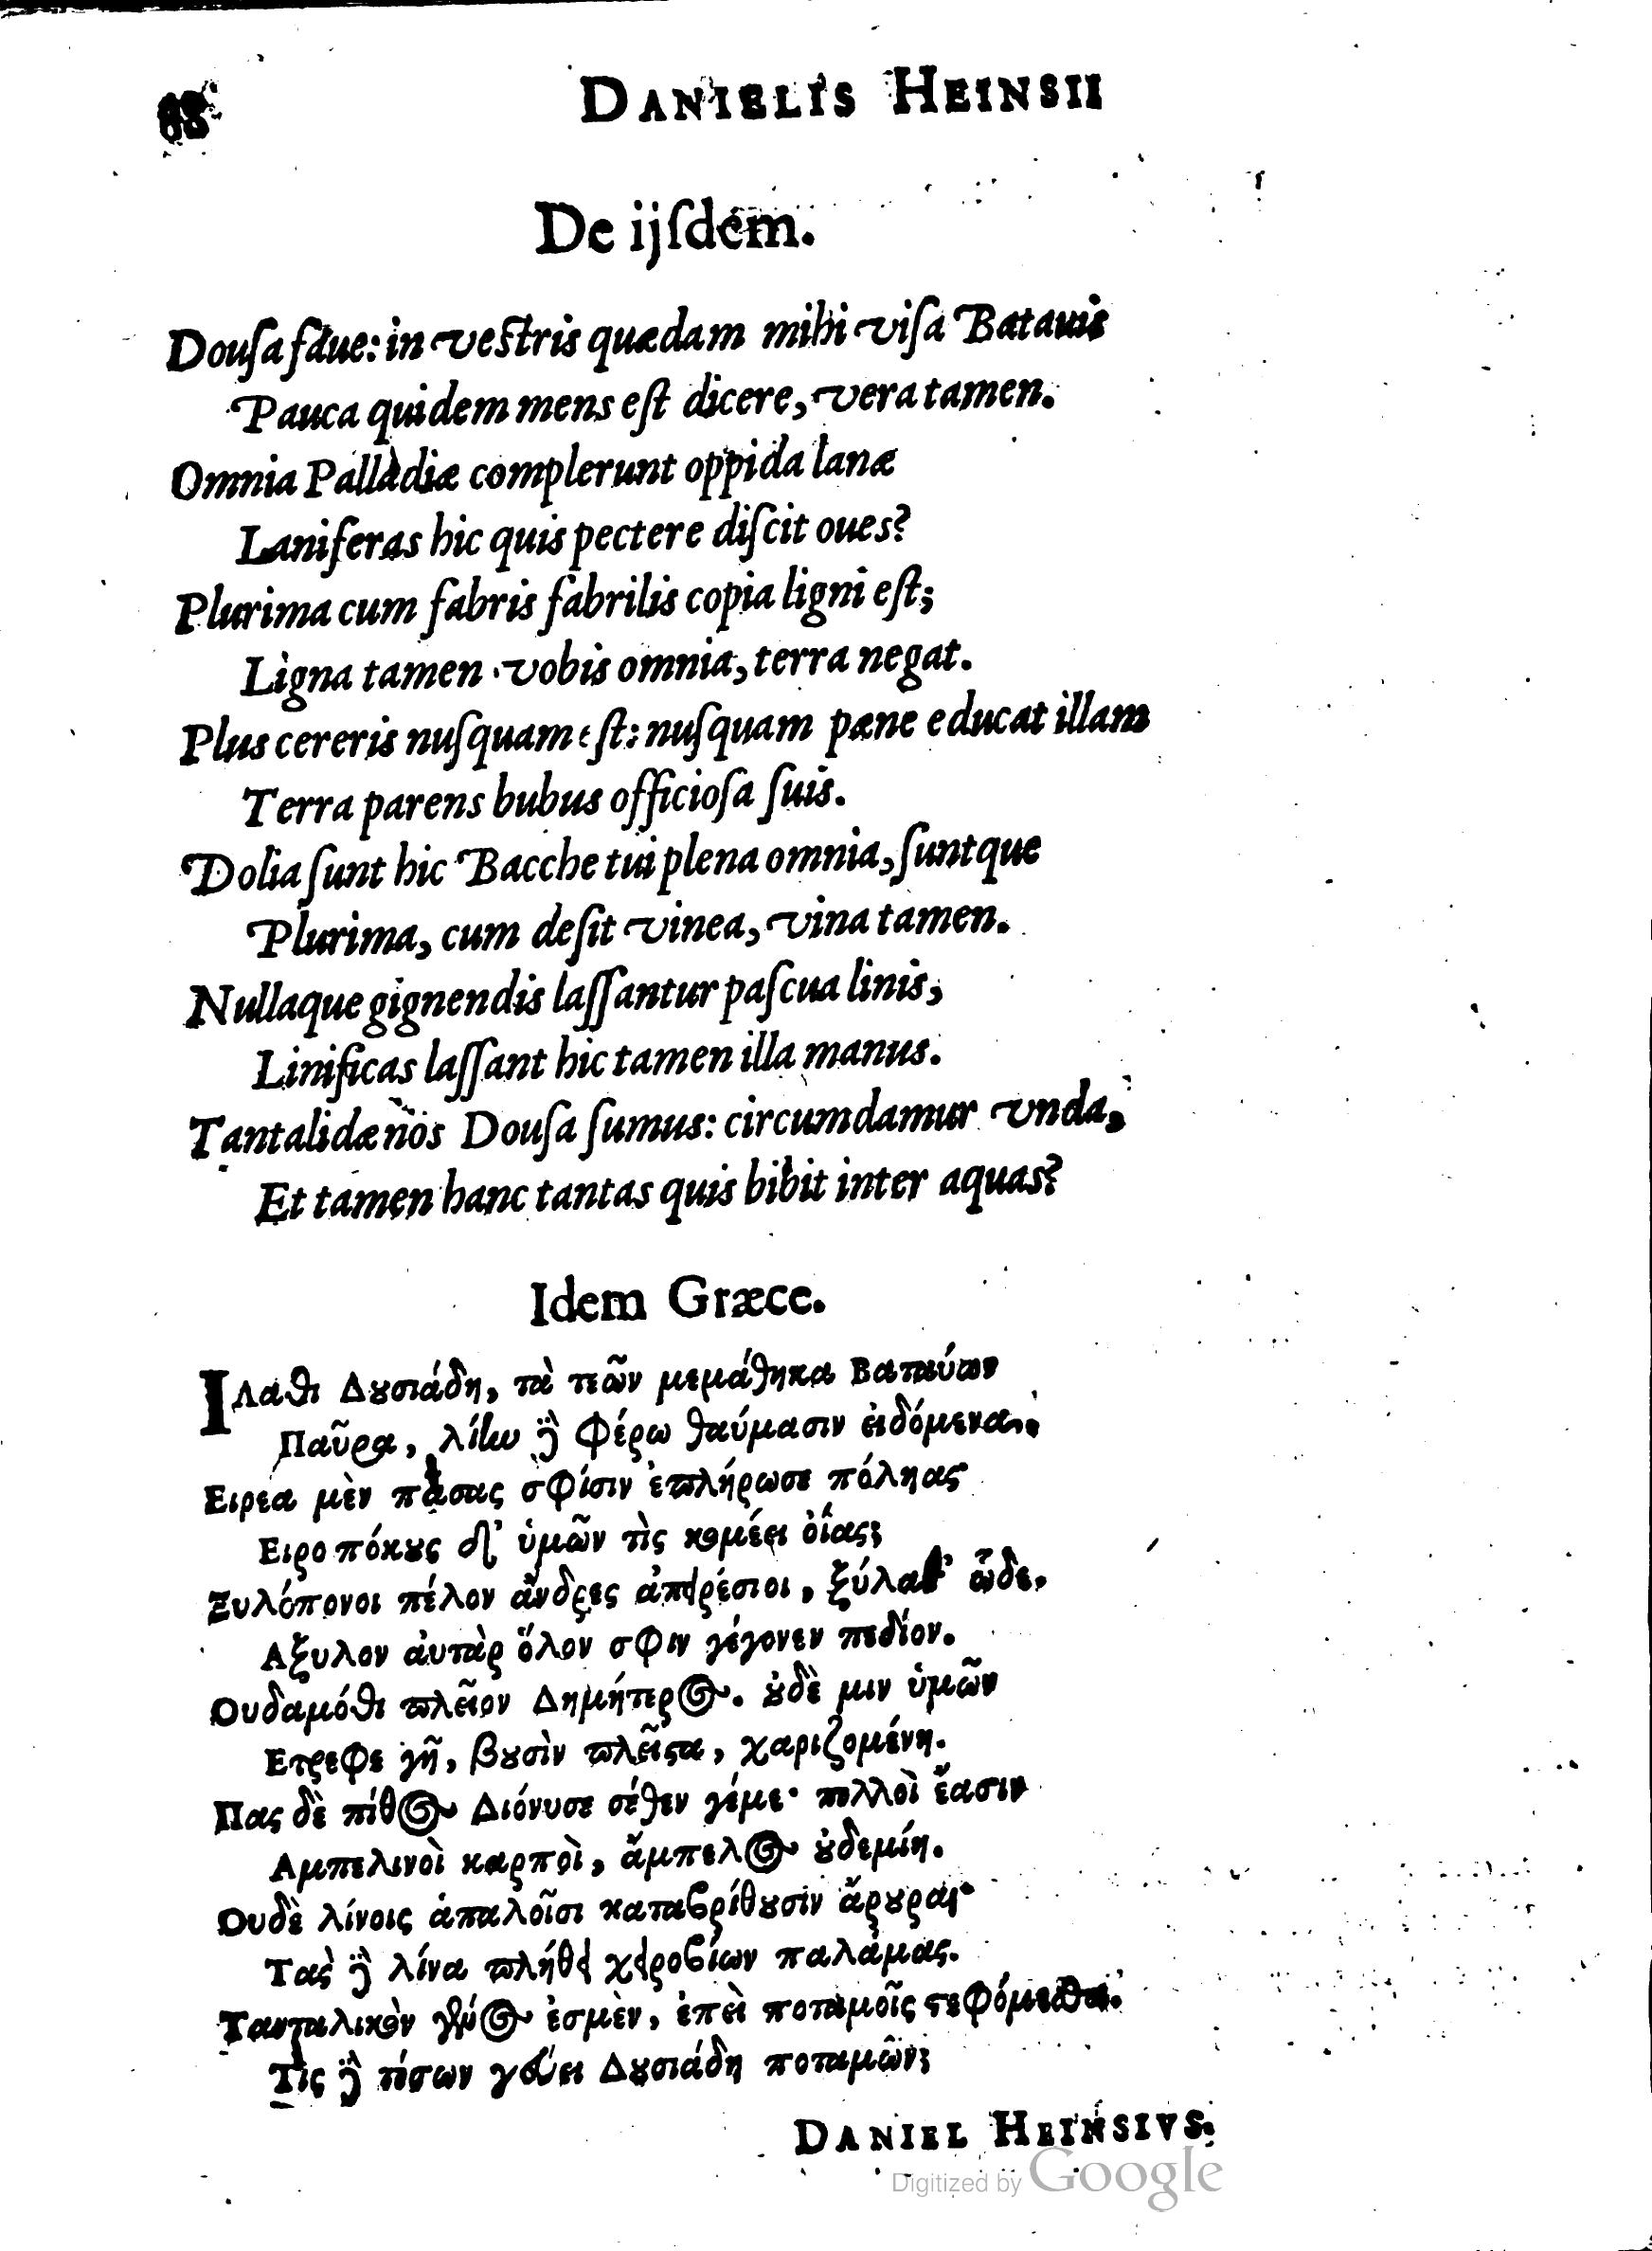 68 DANIELIS HEINSII
De ijſdem.
Douſa fave: in veſtris quædam mihi viſa Batauis
Pauca quidem mens eſt dicere, vera tamen.
Omnia Palladiæ complerunt oppida lanæ
Laniferas hic quis pectere diſcit oues?
Plurima cum fabris fabrilis copia ligni eſt;
Ligna tamen vobis omnia, terra negat.
Plus cereris nuſquam eſt: nuſquam pæne educat illam
Terra parens bubus officioſa ſuis.
Dolia ſunt hic Bacche tui plena omnia, ſuntque
Plurima, cum deſit vinea, vina tamen.
Nullaque gignendis laſſantur paſcua linis,
Linificas laſſant hic tamen illa manus.
Tantalidæ nos Douſa ſumus: circumdamur vnda,
Et tamen hanc tantas quis bibit inter aquas?
Idem Græce.
Ιλαθι Δȣσιάδη, τὰ τεῶν μεμάθηκα Βαταύων
Παῦρα, λίην ἢ φέρω θαύμασιν εἰδόμενα.
Ειρεα μὲν πάσας σφίσιν ἐπλήρωσε πόληας
Ειροπόκȣς δ' ὑμῶν τὶς κομέει ὀΐας;
Ξυλόπονοι πέλον ἄνδρες ἀπειρέσιοι, ξύλα δ' ὧδε,
Αξυλον ἀυτὰρ ὅλον σφιν γέγονεν πεδίον.
Ουδαμόθι πλεῖον Δημήτερος. ȣδὲ μιν ὑμῶν
Ετρεφε γῆ, βȣσὶν πλεῖστα, χαριζομένη.
Πας δὲ πίθος Διόνυσε σέθεν γέμε· πολλοὶ ἔασιν
Αμπελινοὶ καρποὶ, ἄμπελος ȣδεμίη.
Ουδὲ λίνοις ἁπαλοῖσι καταβρίθȣσιν ἄρȣραι·
Τας δὲ λίνα πλήθει χειροβίων παλάμας.
Τανταλικὸν γένος ἐσμὲν, ἐπεὶ ποταμοῖς στεφόμεθα.
Τὶς δὲ τόσων γεύει Δȣσιάδη ποταμῶν;
DANIEL HEINSIVS.
Digitized by Google